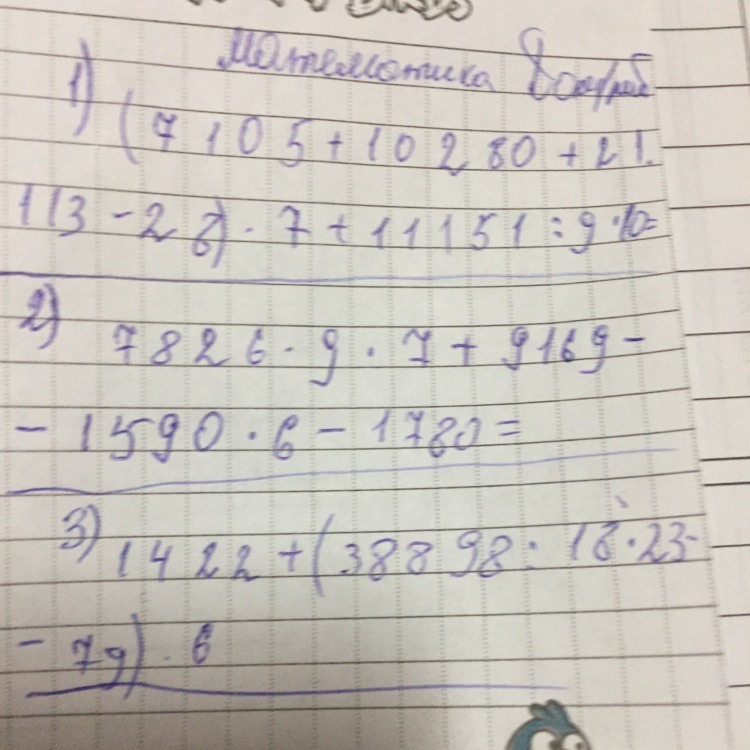 Математика
1) (7105+10280+21.
113-28)·7+11151:9·10=
2) 7826·9·7+9169-
-1590·6-1780=
3) 1422+(38898:18·23-
-79)·6